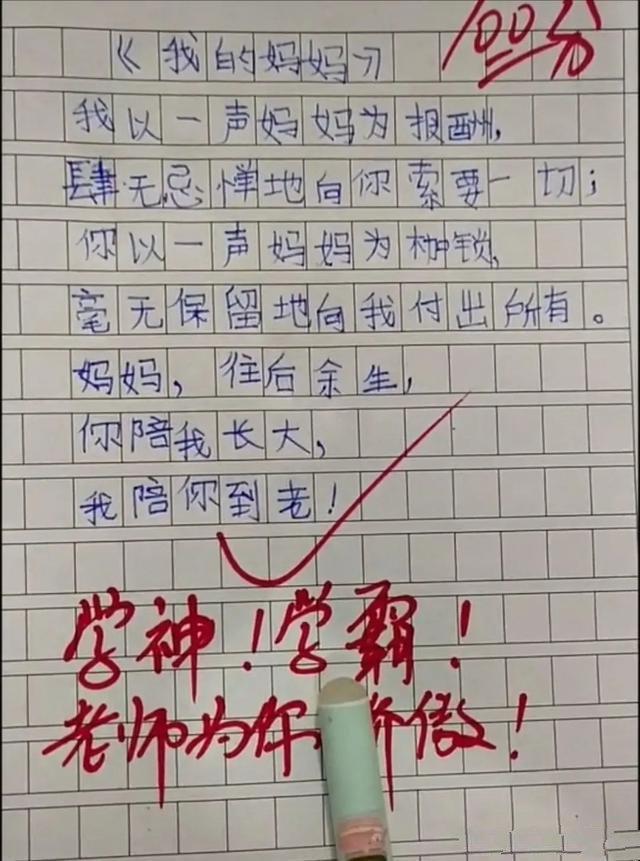 100分
《我的妈妈》
我以一声妈妈为报酬,
肆无忌惮地向你索要一切;
你以一声妈妈为枷锁,
毫无保留地向我付出所有。
妈妈,往后余生,
你陪我长大,
我陪你到老!
学神!学霸!
老师为你 傲!